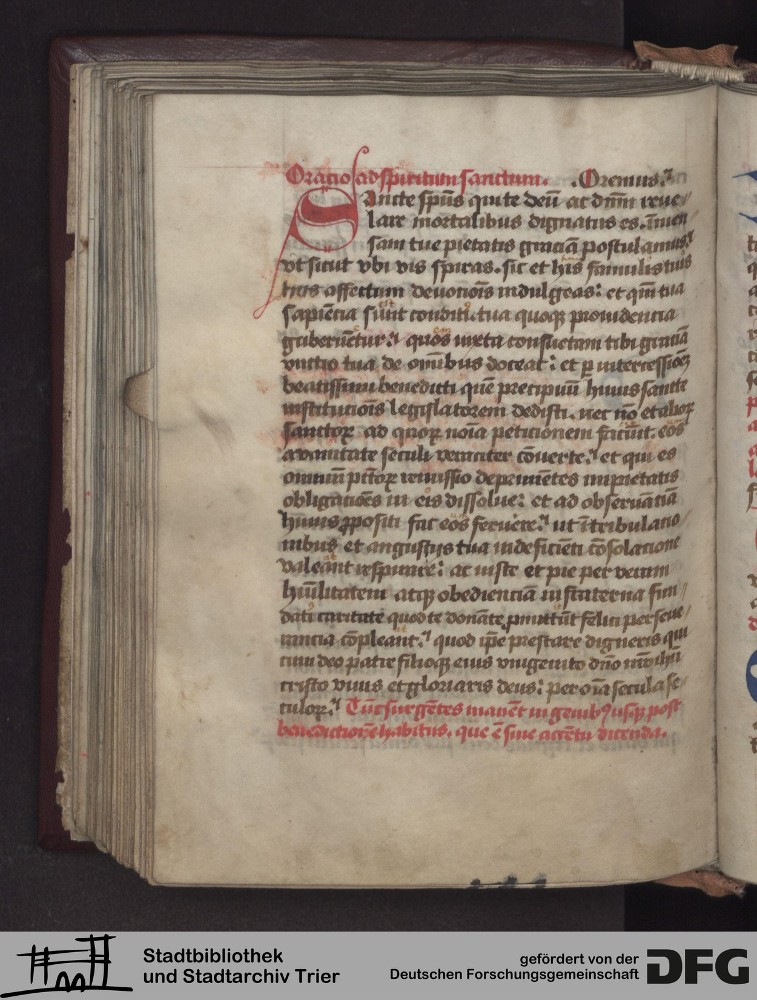 Oracio ad spiritum sanctum. Oremus.
Sancte sp̄us qui te deū ac dn̄m reue/
lare mortalibus dignatus es. īmen/
sam tue pietatis graciā postulamus.
vt sicut vbi vis spiras. sic et his famulis tuis
huis affectum deuotiōis indulgeas: et qm̄ tua
sapiēcia sūnt conditi. tua quoqꝫ prouidencia
gubernētur. quos iuxta consuetam tibi graciā
vnctio tua de om̄ibus doceat: et ꝑ intercessionē
beatissimi benedicti quē precipuū huius sancte
institucōis legislatorem dedisti. nec nō et alioꝝ
sanctoꝝ ad quoꝝ noīa peticionem faciūt. eos
a vanitate seculi veraciter cōuerte. et qui es
omniū pctōꝝ remissio deprimētes impietatis
obligacōes in eis dissolue: et ad obseruāciā
huius ꝓpositi fac eos feruere. ut ī tribulacio/
nibus et angustijs tua indeficiēti cōsolacione
valeant respirare: ac iuste et pie per veram
hūilitatem atqꝫ obedienciā in fraterna fun/
dati caritate quod te donāte promittūt felici perseue/
rancia cōpleant. quod ip̄e prestare digneris qui
cum deo patre filioqꝫ eius vnigenito dn̄o nr̄o ihū
cristo viuis et gloriaris deus: per oīa secula se/
culoꝝ. Tūc surgētes maneāt in genibꝰ usqꝫ post
benedictionē habitus. que ē sine accētu dicenda.
Stadtbibliothek
und Stadtarchiv Trier
gefördert von der
Deutschen Forschungsgemeinschaft
DFG